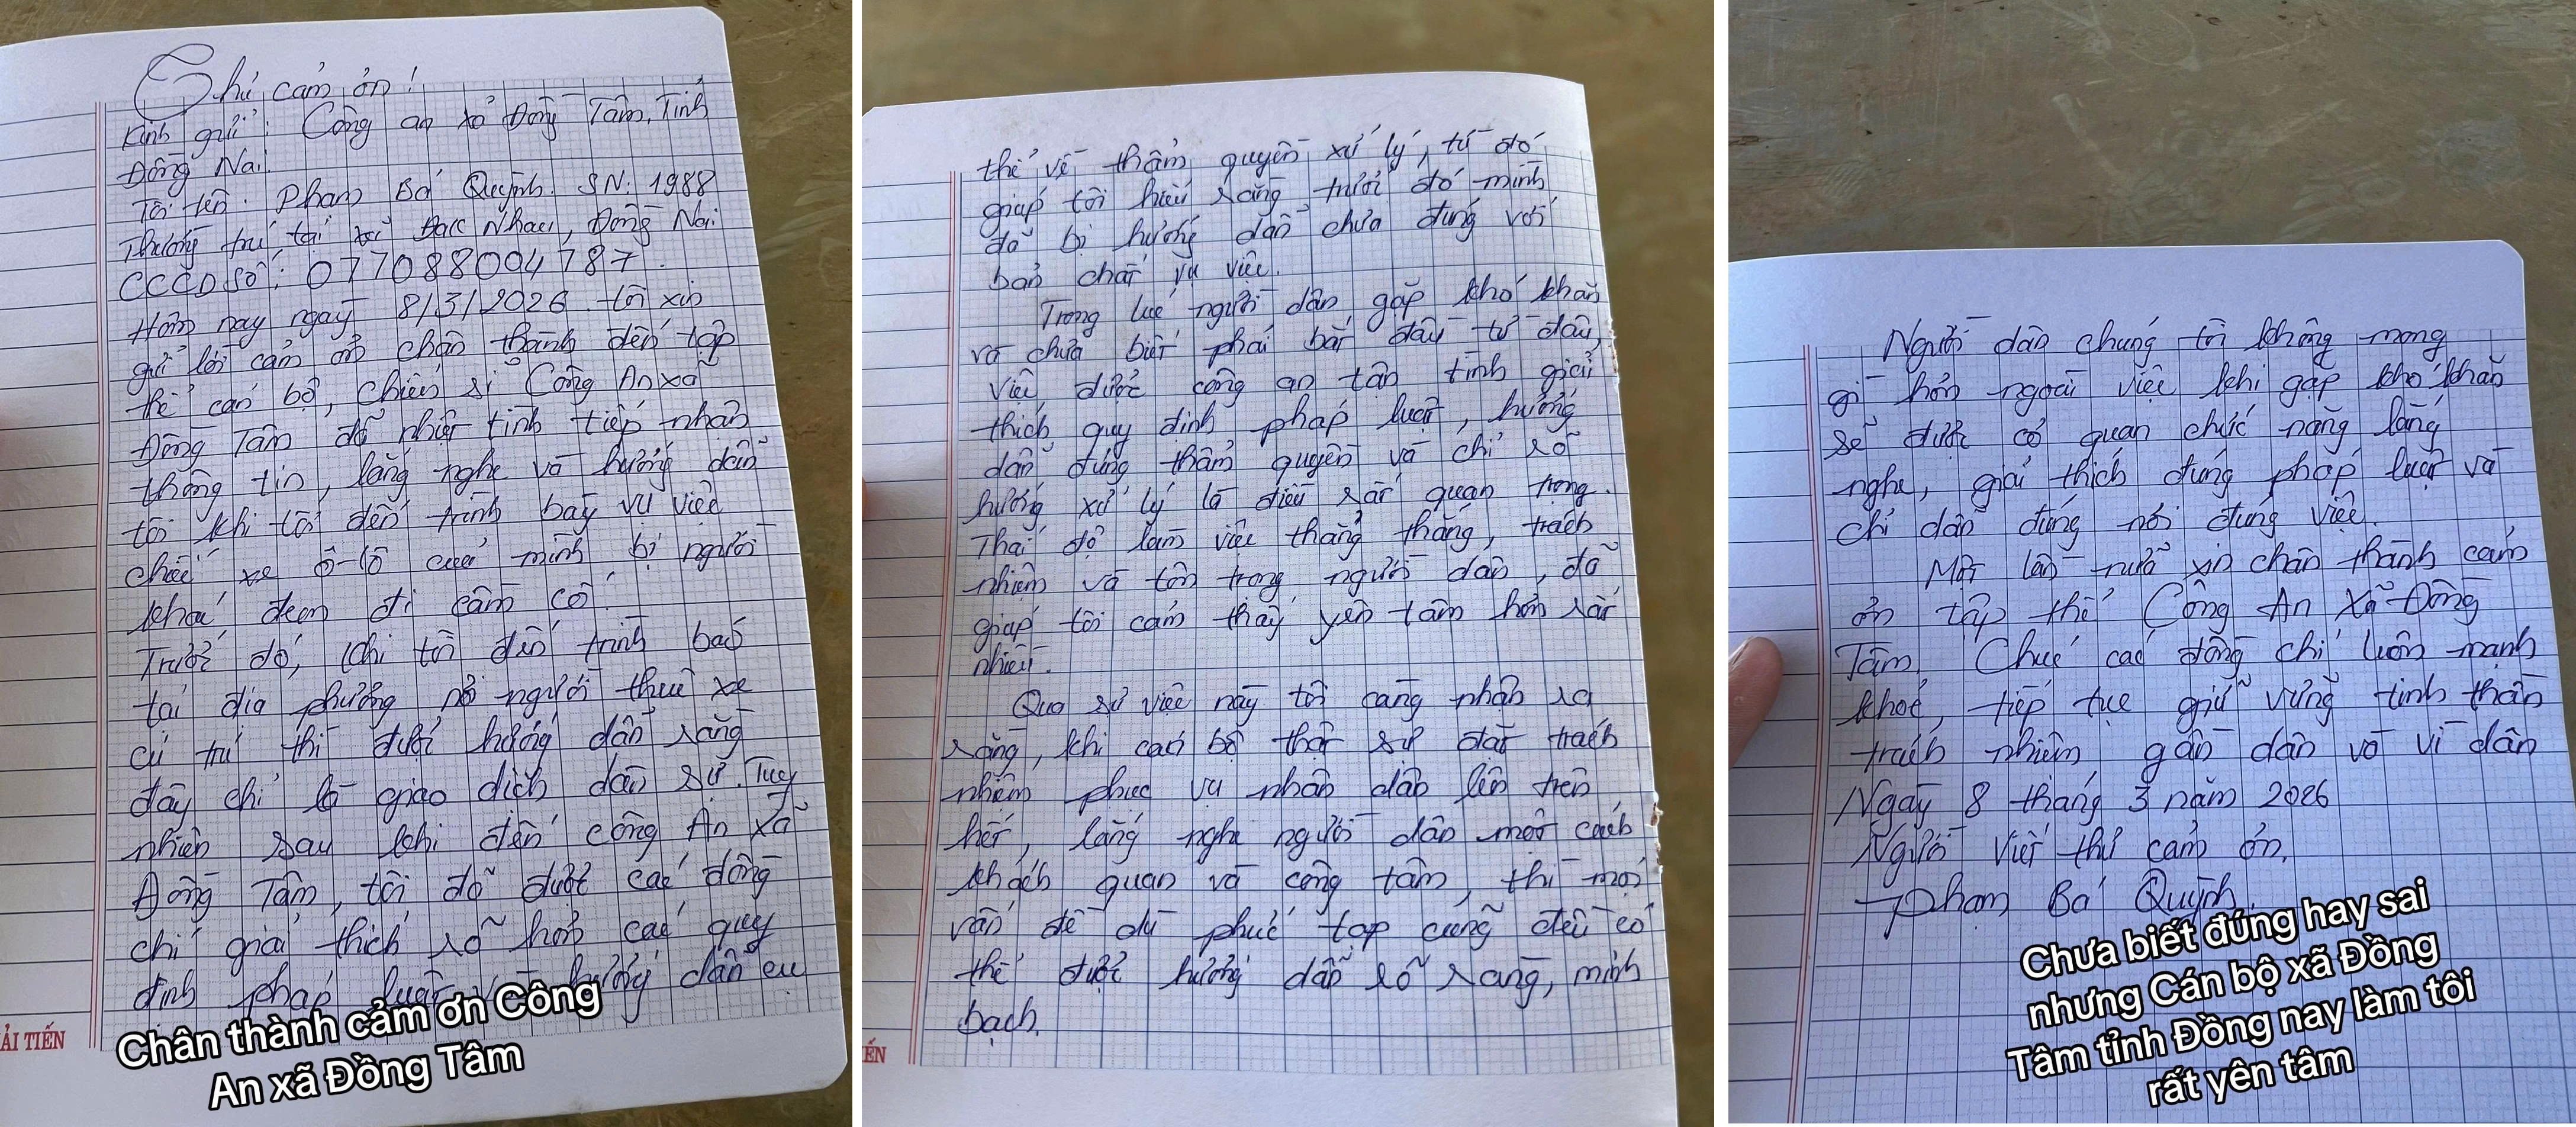 Thư cảm ơn!
Kính gửi: Công an xã Đồng Tâm, Tỉnh
Đồng Nai.
Tôi tên: Phạm Bá Quỳnh. SN: 1988
Thường trú tại xã Đak Nhau, Đồng Nai
CCCD Số: 077088004787.
Hôm nay ngày 8/3/2026 tôi xin
gửi lời cảm ơn chân thành đến tập
thể cán bộ, chiến sĩ Công An xã
Đồng Tâm đã nhiệt tình tiếp nhận
thông tin, lắng nghe và hướng dẫn
tôi khi tôi đến trình bày vụ việc
chiếc xe ô-tô của mình bị người
khác đem đi cầm cố.
Trước đó, khi tôi đến trình báo
tại địa phương nơi người thuê xe
cư trú thì được hướng dẫn rằng
đây chỉ là giao dịch dân sự. Tuy
nhiên sau khi đến công An xã
Đồng Tâm, tôi đã được các đồng
chí giải thích rõ hơn các quy
định pháp luật và hướng dẫn cụ
ẢI TIẾN
Chân thành cảm ơn Công
An xã Đồng Tâm
thể về thẩm quyền xử lý, từ đó
giúp tôi hiểu rằng trước đó mình
đã bị hướng dẫn chưa đúng với
bản chất vụ việc.
Trong lúc người dân gặp khó khăn
và chưa biết phải bắt đầu từ đâu,
việc được công an tận tình giải
thích quy định pháp luật, hướng
dẫn đúng thẩm quyền và chỉ rõ
hướng xử lý là điều rất quan trọng.
Thái độ làm việc thẳng thắng, trách
nhiệm và tôn trọng người dân, đã
giúp tôi cảm thấy yên tâm hơn rất
nhiều.
Qua sự việc này tôi càng nhận ra
rằng, khi cán bộ thật sự đặt trách
nhiệm phục vụ nhân dân lên trên
hết, lắng nghe người dân một cách
khách quan và công tâm, thì mọi
vấn đề dù phức tạp cũng đều có
thể được hướng dẫn rõ ràng, minh
bạch.
ẾN
Người dân chúng tôi không mong
gì hơn ngoài việc khi gặp khó khăn
sẽ được cơ quan chức năng lắng
nghe, giải thích đúng pháp luật và
chỉ dẫn đúng nơi đúng việc.
Một lần nữa xin chân thành cảm
ơn tập thể Công An Xã Đồng
Tâm. Chúc các đồng chí luôn mạnh
khoẻ, tiếp tục giữ vững tinh thần
trách nhiệm gần dân và vì dân
Ngày 8 tháng 3 năm 2026
Người viết thư cảm ơn,
Phạm Bá Quỳnh.
Chưa biết đúng hay sai
nhưng Cán bộ xã Đồng
Tâm tỉnh Đồng nay làm tôi
rất yên tâm